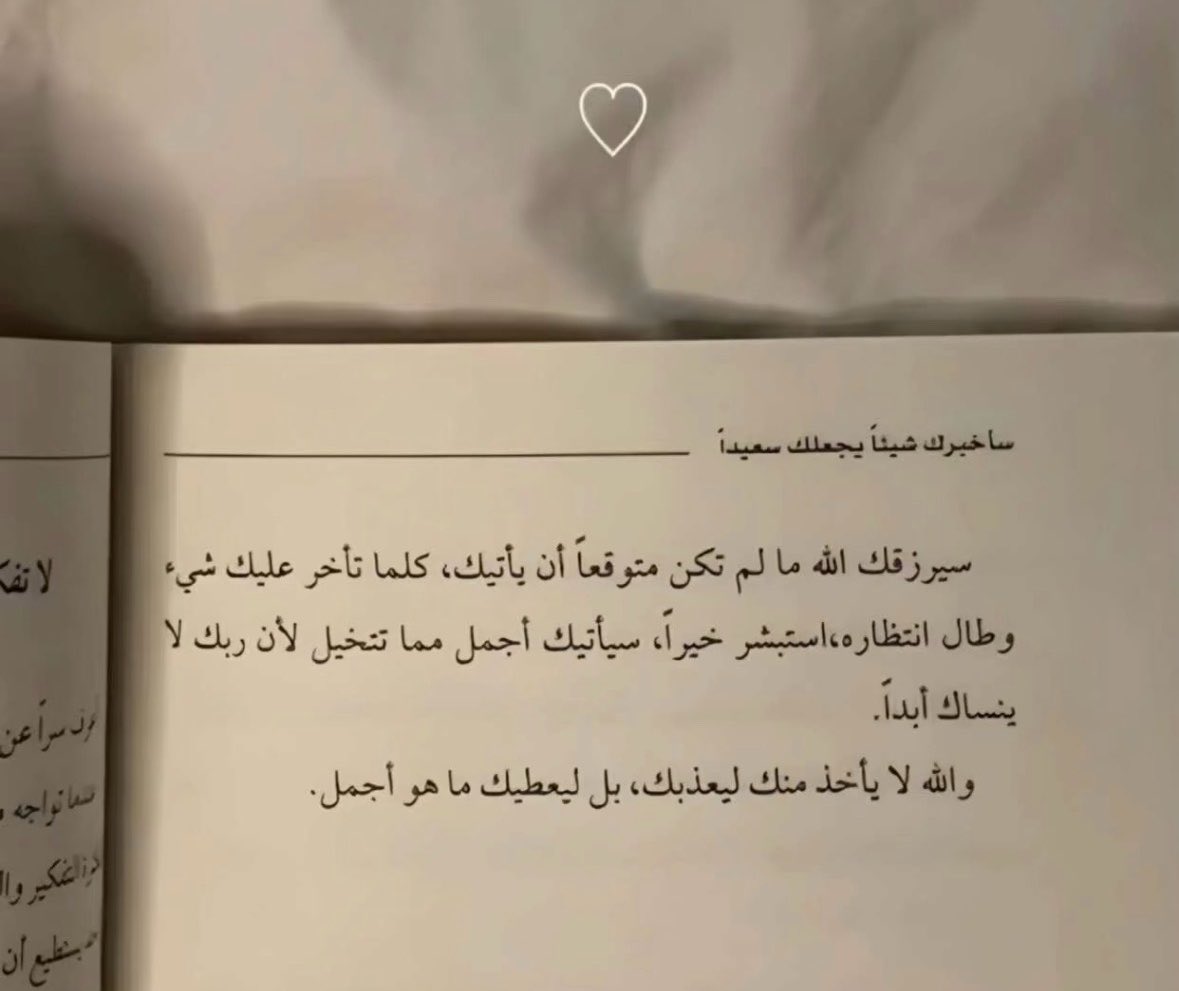 سأخبرك شيئاً يجعلك سعيداً
سيرزقك الله ما لم تكن متوقعاً أن يأتيك، كلما تأخر عليك شيء
وطال انتظاره،استبشر خيراً، سيأتيك أجمل مما تتخيل لأن ربك لا
ينساك أبداً.
والله لا يأخذ منك ليعذبك، بل ليعطيك ما هو أجمل.
لا
سراً عن
تواجه
التفكير
أن